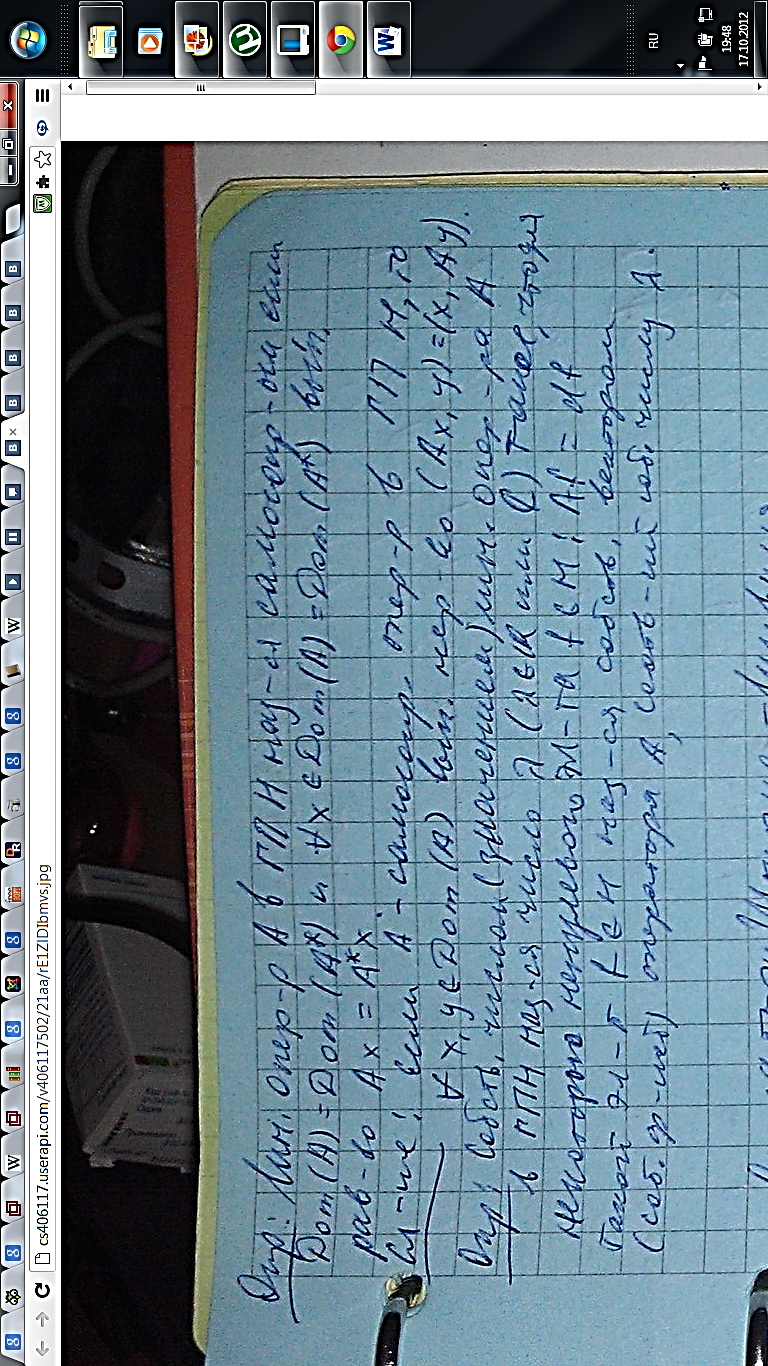 RU
19:48
17.10.2012
cs406117.userapi.com/v406117502/21aa/rE1ZIDIbmvs.jpg
Опр: Лин. опер-р A в ГПН наз-ся самосопр-ым если
Dom(A)=Dom(A*) и ∀x∈Dom(A)=Dom(A*) вып.
рав-во Ax = A*x.
Сл-ие: Если A - самосопр. опер-р в ГП H, то
∀x,y∈Dom(A) вып. рав-во (Ax,y)=(x,Ay).
Опр: Собств. числом (значением) лин. опер-ра A
в ГПН наз-ся число λ (λ∈R или C) такое, что для
некоторого ненулевого эл-та f∈H: Af = λf
Такой эл-т f∈H наз-ся собств. вектором
(соб. ф-цией) оператора A, соотв-ий соб. числу λ.